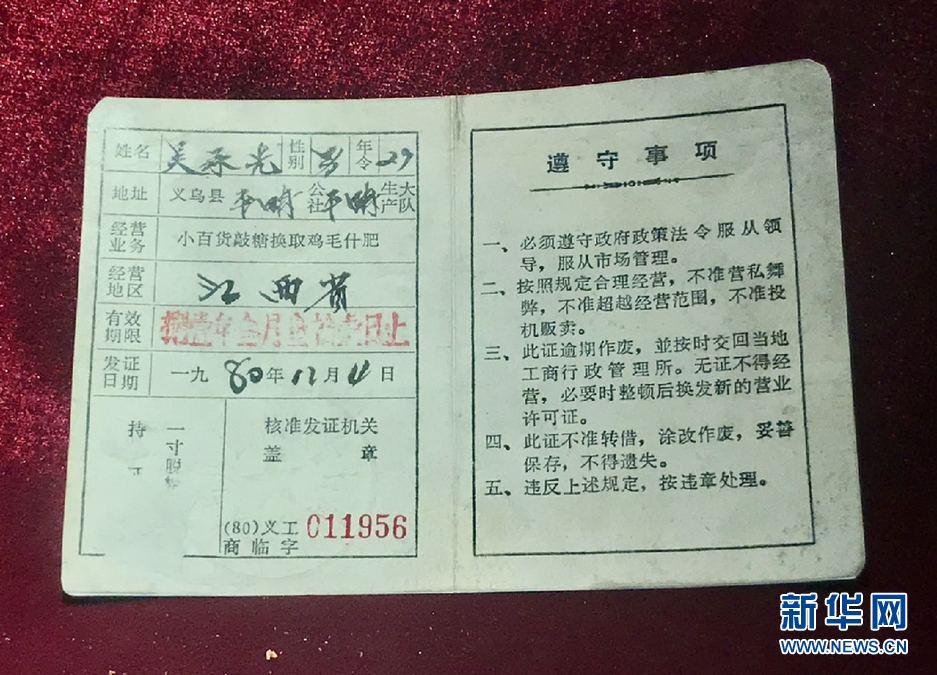 姓名 吴承光 性别 男 年令 27
地址 义乌县 平畴 公社 平畴 生产大队
经营业务 小百货敲糖换取鸡毛什肥
经营地区 江西省
有效期限 捌壹年 月 日止
发证日期 一九80年12月11日
持 一寸脱
核准发证机关
盖 章
(80)义工
商临字 011956
遵守事项
一、必须遵守政府政策法令服从领
导，服从市场管理。
二、按照规定合理经营，不准营私舞
弊，不准超越经营范围，不准投
机贩卖。
三、此证逾期作废，並按时交回当地
工商行政管理所。无证不得经
营，必要时整顿后换发新的营业
许可证。
四、此证不准转借，涂改作废，妥善
保存，不得遗失。
五、违反上述规定，按违章处理。
新华网
WWW.NEWS.CN